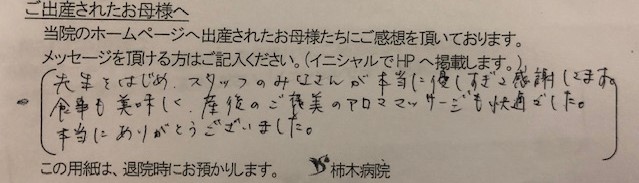 ご出産されたお母様へ
当院のホームページへ出産されたお母様たちにご感想を頂いております。
メッセージを頂ける方はご記入ください。(イニシャルでHPへ掲載します。)
先生をはじめ、スタッフのみなさんが本当に優しすぎて感謝してます。
食事も美味しく、産後のご褒美のアロママッサージも快適でした。
本当にありがとうございました。
この用紙は、退院時にお預かりします。 柿木病院